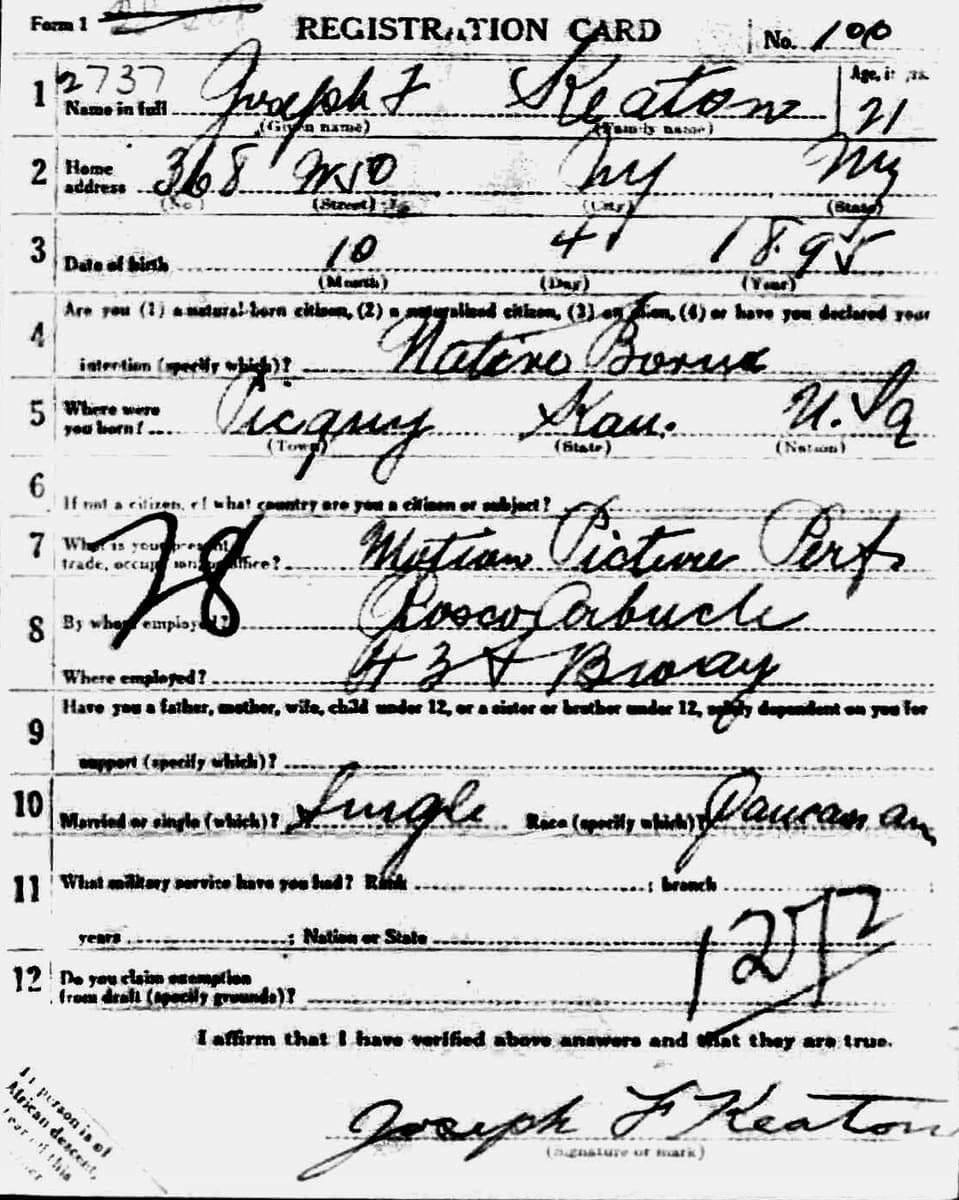 Form 1 REGISTRATION CARD No. 100
2737
1 Name in full Joseph F Keaton Age, in yrs. 21
(Given name) (Family name)
2 Home address 368 W 50 NY NY
(No.) (Street) (City) (State)
3 Date of birth 10 4 1895
(Month) (Day) (Year)
Are you (1) a natural-born citizen, (2) a naturalized citizen, (3) an alien, (4) or have you declared your
4 intention (specify which)? Native Born
5 Where were you born? Picquy Kan. U.S.a
(Town) (State) (Nation)
6 If not a citizen, of what country are you a citizen or subject?
7 What is your present trade, occupation, or office? Motion Picture Perf
28
8 By whom employed? Rosco Arbucle
Where employed? 43 & Broway
Have you a father, mother, wife, child under 12, or a sister or brother under 12, solely dependent on you for
9 support (specify which)?
10 Married or single (which)? Single Race (specify which)? Caucasian
11 What military service have you had? Rank ; branch
years ; Nation or State
12 Do you claim exemption
from draft (specify grounds)?
I affirm that I have verified above answers and that they are true.
If person is of
African descent,
tear off this
corner
Joseph F Keaton
(Signature or mark)